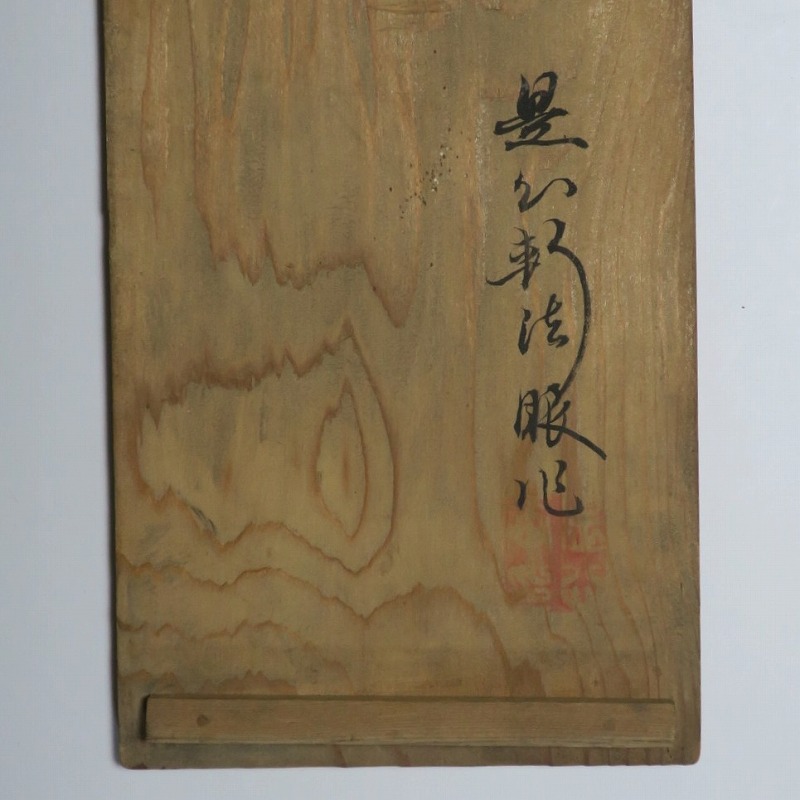 是心軒法眼作